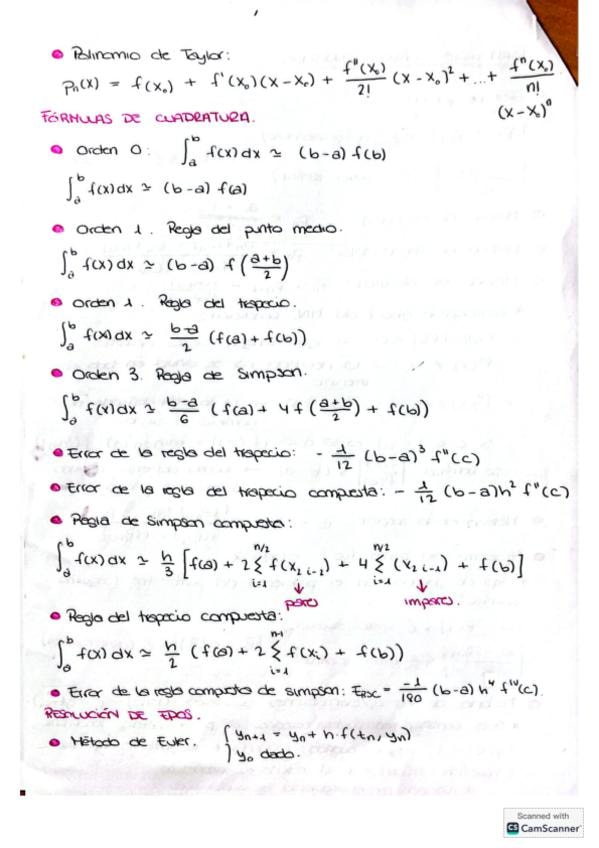 • Polinomio de Taylor:
Pn(x) = f(x₀) + f'(x₀)(x-x₀) + f''(x₀)/2! (x-x₀)² + ... + fⁿ(x₀)/n!
(x-x₀)ⁿ
FÓRMULAS DE CUADRATURA.
• Orden 0: ∫ₐᵇ f(x) dx ≃ (b-a) f(b)
∫ₐᵇ f(x) dx ≃ (b-a) f(a)
• Orden 1. Regla del punto medio.
∫ₐᵇ f(x) dx ≃ (b-a) f((a+b)/2)
• Orden 1. Regla del trapecio.
∫ₐᵇ f(x) dx ≃ (b-a)/2 (f(a) + f(b))
• Orden 3. Regla de Simpson.
∫ₐᵇ f(x) dx ≃ (b-a)/6 (f(a) + 4f((a+b)/2) + f(b))
• Error de la regla del trapecio: - 1/12 (b-a)³ f''(c)
• Error de la regla del trapecio compuesta: - 1/12 (b-a)h² f''(c)
• Regla de Simpson compuesta:
∫ₐᵇ f(x) dx ≃ h/3 [f(a) + 2 Σ_{i=1}^{n/2} f(x_{2i-1}) + 4 Σ_{i=1}^{n/2} (x_{2i-1}) + f(b)]
pares impares.
• Regla del trapecio compuesta:
∫ₐᵇ f(x) dx ≃ h/2 (f(a) + 2 Σ_{i=1}^{n-1} f(xᵢ) + f(b))
• Error de la regla compuesta de Simpson: E_RSC = -1/180 (b-a) h⁴ f^{IV}(c).
RESOLUCIÓN DE EDOS.
• Método de Euler. { y_{n+1} = y_n + h·f(t_n, y_n)
y₀ dado.
Scanned with
CS CamScanner